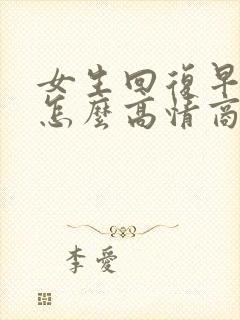 女生回復早
怎麼高情商
李愛